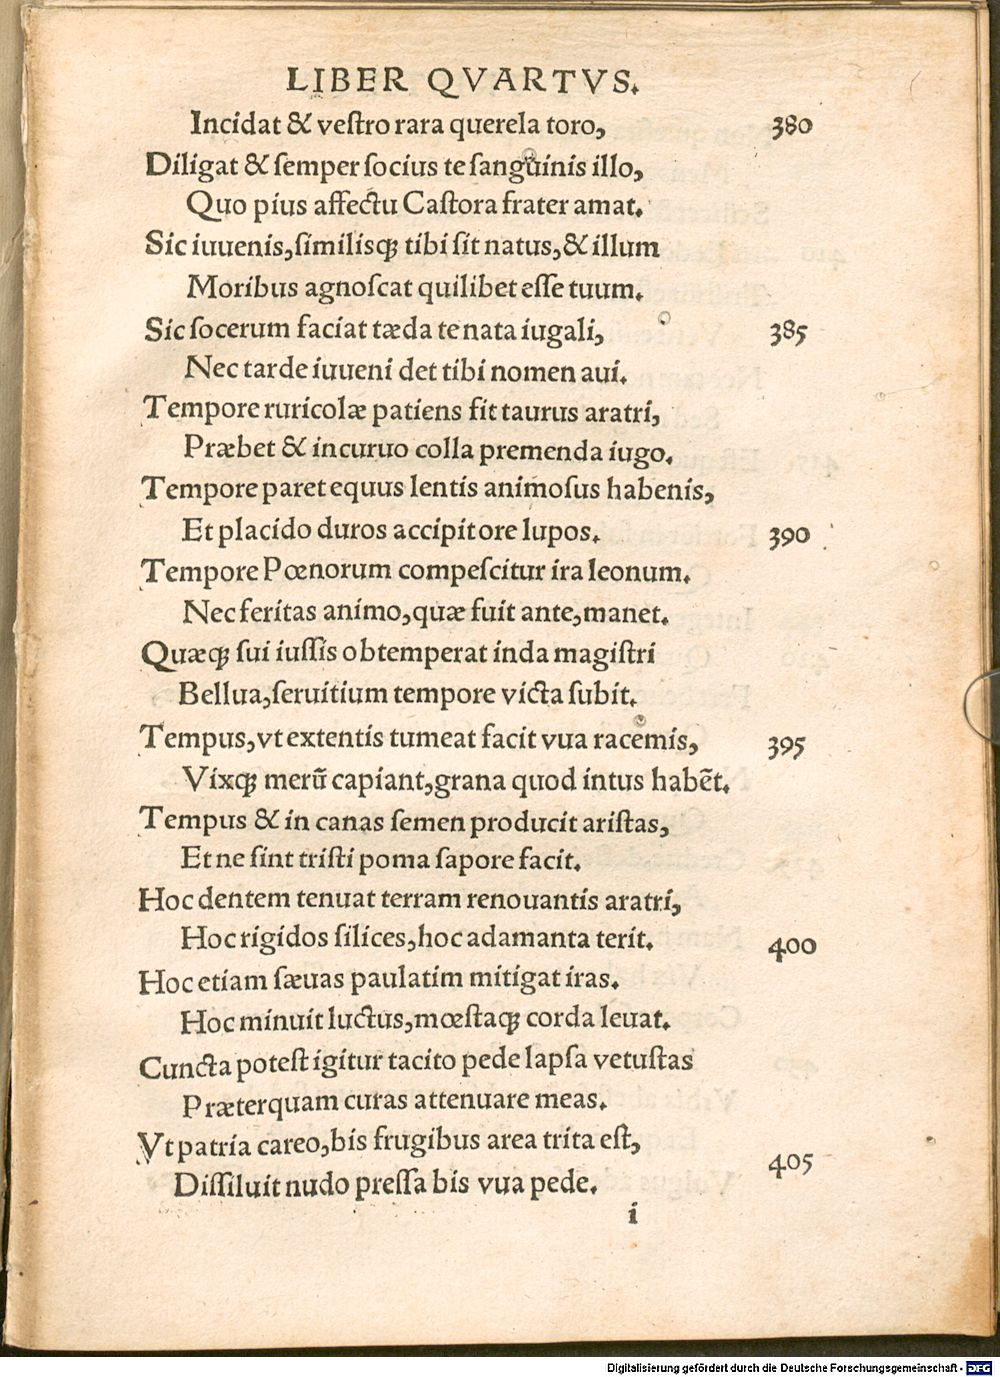 LIBER QVARTVS.
Incidat & veſtro rara querela toro, 380
Diligat & ſemper ſocius te ſanguinis illo,
Quo pius affectu Caſtora frater amat.
Sic iuuenis, ſimilisqꝫ tibi ſit natus, & illum
Moribus agnoſcat quilibet eſſe tuum.
Sic ſocerum faciat tæda te nata iugali, 385
Nec tarde iuueni det tibi nomen aui.
Tempore ruricolæ patiens fit taurus aratri,
Præbet & incuruo colla premenda iugo.
Tempore paret equus lentis animoſus habenis,
Et placido duros accipit ore lupos. 390
Tempore Pœnorum compeſcitur ira leonum.
Nec feritas animo, quæ fuit ante, manet.
Quæqꝫ ſui iuſſis obtemperat inda magiſtri
Bellua, ſeruitium tempore victa ſubit.
Tempus, vt extentis tumeat facit vua racemis, 395
Vixqꝫ merũ capiant, grana quod intus habẽt.
Tempus & in canas ſemen producit ariſtas,
Et ne ſint triſti poma ſapore facit.
Hoc dentem tenuat terram renouantis aratri,
Hoc rigidos ſilices, hoc adamanta terit. 400
Hoc etiam ſæuas paulatim mitigat iras.
Hoc minuit luctus, mœſtaqꝫ corda leuat.
Cuncta poteſt igitur tacito pede lapſa vetuſtas
Præterquam curas attenuare meas.
Vt patria careo, bis frugibus area trita eſt, 405
Diſſiluit nudo preſſa bis vua pede.
i
Digitalisierung gefördert durch die Deutsche Forschungsgemeinschaft - DFG